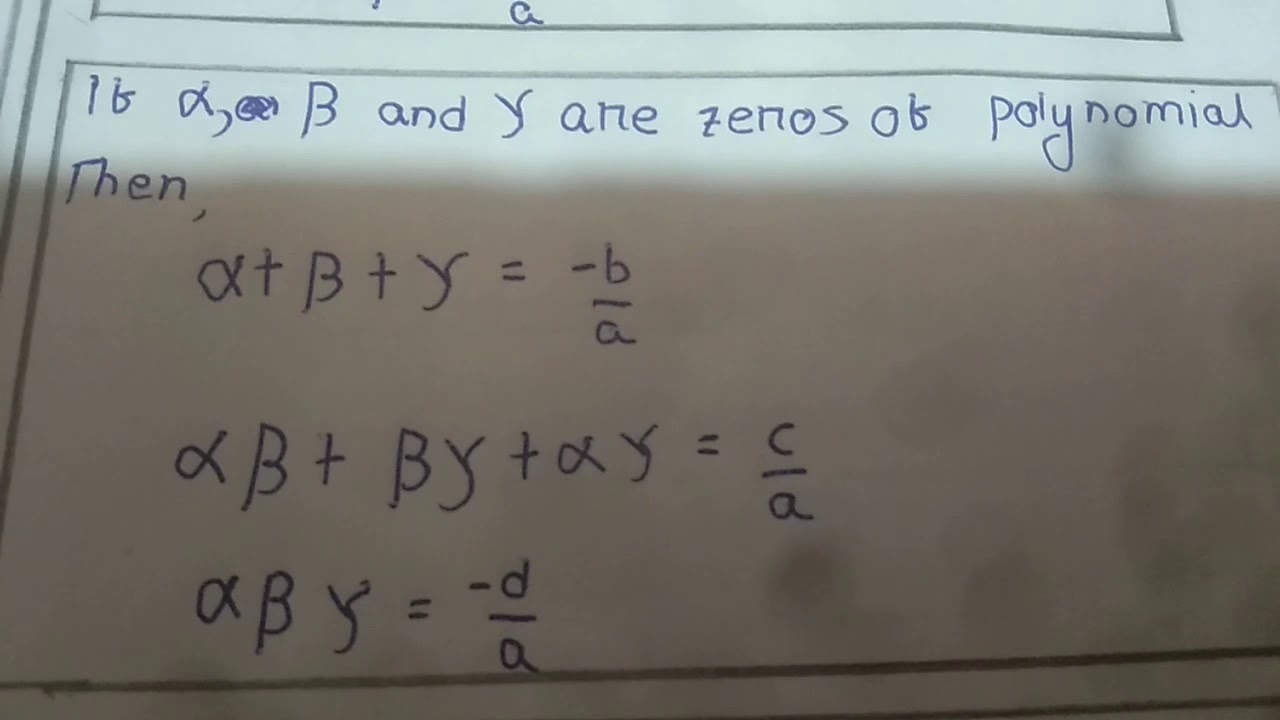 a
If α, β and γ are zeros of polynomial
Then,
α + β + γ = -b/a
αβ + βγ + αγ = c/a
αβγ = -d/a